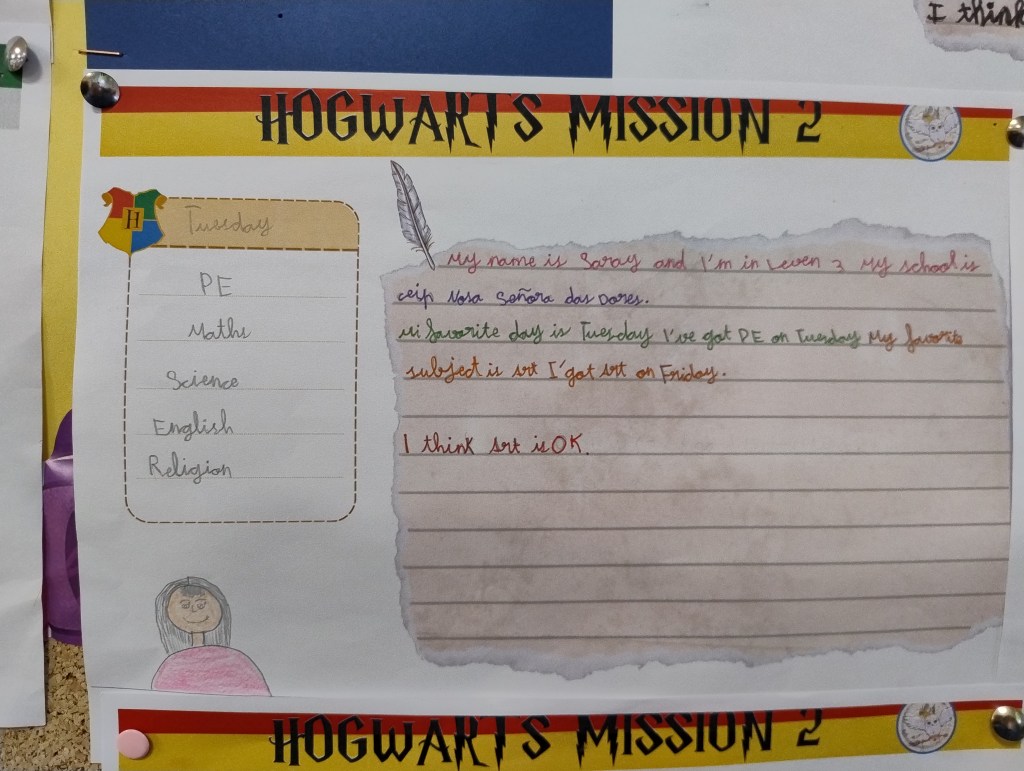 I think
HOGWARTS MISSION 2
Tuesday
PE
Maths
Science
English
Religion
My name is Saray and I'm in Leven 3 My school is
ceip Nosa Señora das Dores.
Mi favorite day is Tuesday I've got PE on Tuesday My favorite
subject is Art I'got Art on Friday.
I think Art is OK.
HOGWARTS MISSION 2